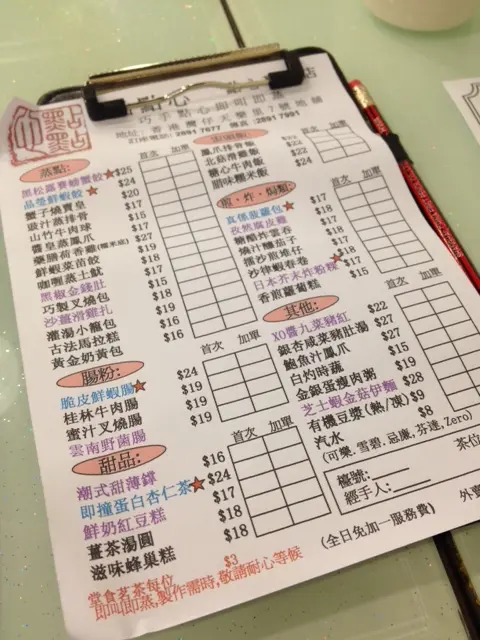 點心
店
巧手點心即叫即蒸
地址: 香港灣仔天樂里7號地舖
訂座電話: 2891 7677 傳真: 2891 7991
蒸點: 首次 加單
黑松露賽螃蟹餃 $25
晶瑩鮮蝦餃 $24
蟹子燒賣皇 $20
豉汁蒸排骨 $17
山竹牛肉球 $15
醬皇蒸鳳爪 $17
藥膳荷香雞(糯米底) $27
鮮蝦菜苗餃 $19
咖喱蒸土魷 $18
黑椒金錢肚 $17
巧製叉燒包 $15
沙薑滑雞扎 $18
灌湯小籠包 $19
古法馬拉糕 $16
黃金奶黃包 $16
腸粉: 首次 加單
脆皮鮮蝦腸 $24
桂林牛肉腸 $19
蜜汁叉燒腸 $19
雲南野菌腸 $19
甜品: 首次 加單
潮式甜薄罉 $16
即撞蛋白杏仁茶 $24
鮮奶紅豆糕 $17
薑茶湯圓 $18
滋味蜂巢糕 $18
首次 加單
鳳爪排骨飯
北菇滑雞飯 $22
糖心牛肉飯 $22
臘味糯米飯 $24
煎·炸·焗類: 首次 加單
真係菠蘿包 $17
孜然腐皮雞 $18
糖醋炸雲吞 $17
燒汁釀茄子 $17
擂沙煎堆仔 $15
沙律蝦春卷 $18
日本芥末炸粉粿 $17
香煎蘿蔔糕 $15
其他: 首次 加單
XO醬九菜豬紅 $22
銀杏咸菜豬肚湯 $27
鮑魚汁鳳爪 $27
白灼時蔬 $15
金銀蛋瘦肉粥 $19
芝士蝦金菇伊麵 $28
有機豆漿(熱/凍) $9
汽水 $8
(可樂. 雪碧. 忌廉, 芬達, Zero)
檯號: 茶位
經手人:
外賣
(全日免加一服務費)
堂食茗茶每位 $3
即叫即蒸,製作需時,敬請耐心等候